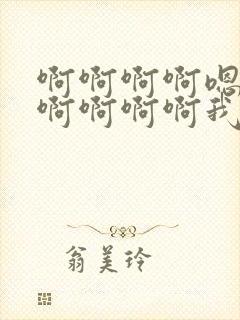 啊啊啊啊嗯
啊啊啊啊我
翁美玲